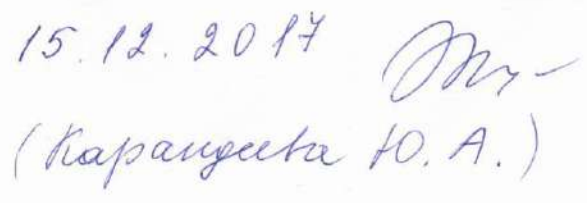 15.12.2017
(Карандеева Ю.А.)